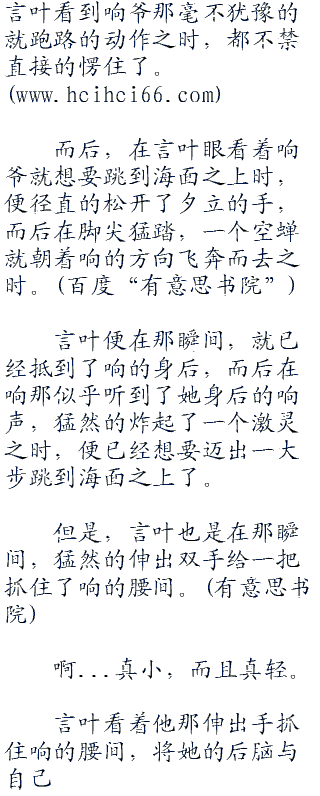 言叶看到响爷那毫不犹豫的
就跑路的动作之时，都不禁
直接的愣住了。
(www.hcihci66.com)
而后，在言叶眼看着响
爷就想要跳到海面之上时，
便径直的松开了夕立的手，
而后在脚尖猛踏，一个空蝉
就朝着响的方向飞奔而去之
时。(百度“有意思书院”)
言叶便在那瞬间，就已
经抵到了响的身后，而后在
响那似乎听到了她身后的响
声，猛然的炸起了一个激灵
之时，便已经想要迈出一大
步跳到海面之上了。
但是，言叶也是在那瞬
间，猛然的伸出双手给一把
抓住了响的腰间。(有意思书
院)
啊...真小，而且真轻。
言叶看着他那伸出手抓
住响的腰间，将她的后脑与
自己